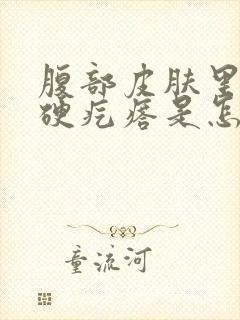 腹部皮肤里
硬疙瘩是怎
童流河